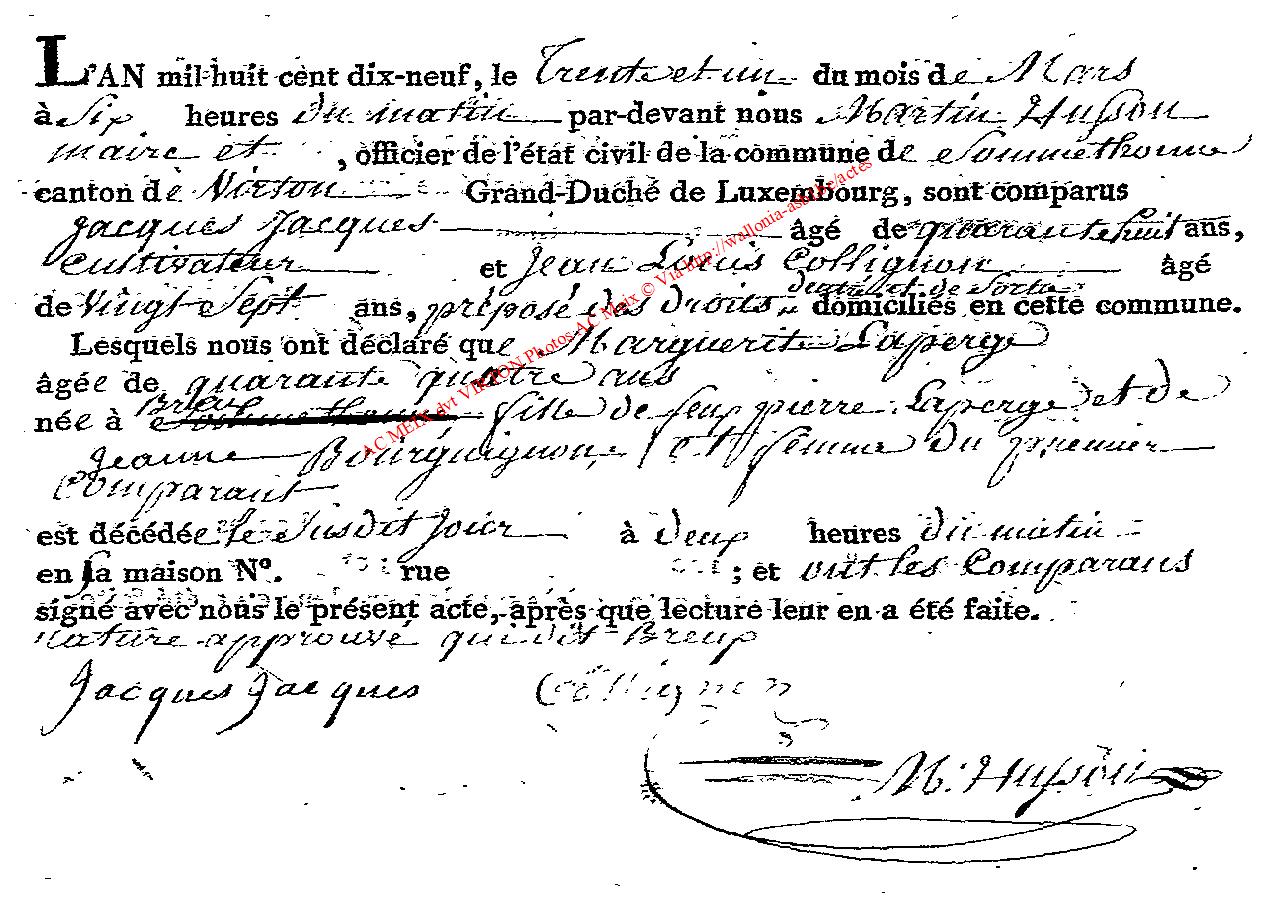 L'AN mil huit cent dix-neuf, le Trente et un du mois de Mars
à Six heures du matin par-devant nous Martin Husson
maire et , officier de l'état civil de la commune de Sommethonne
canton de Virton Grand-Duché de Luxembourg, sont comparus
Jacques Jacques âgé de quarante huit ans,
Cultivateur et Jean Louis Collignon âgé
d'entrée et de Sortie
de Vingt Sept ans, préposé des droits domiciliés en cette commune.
Lesquels nous ont déclaré que Marguerite Laperge
âgée de quarante quatre ans
Breux
née à fille de feux pierre Laperge et de
Jeanne Bourguignon, Et femme du premier
Comparant
est décédée le Susdit Jour à deux heures du matin
en sa maison N°. rue ; et ont les Comparans
signé avec nous le présent acte, après que lecture leur en a été faite.
rature approuvé qui dit Breux
Jacques Jacques Collignon
M. Husson
AC MEIX dvt VIRTON Photos AC Meix © Via http://wallonia-asbl.be/actes